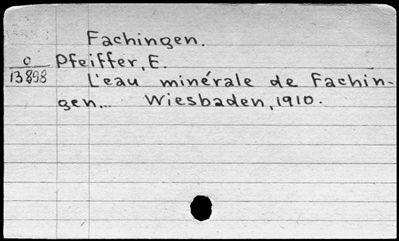 Fachingen.
o Pfeiffer, E.
13898 L'eau minérale de Fachin-
gen... Wiesbaden, 1910.